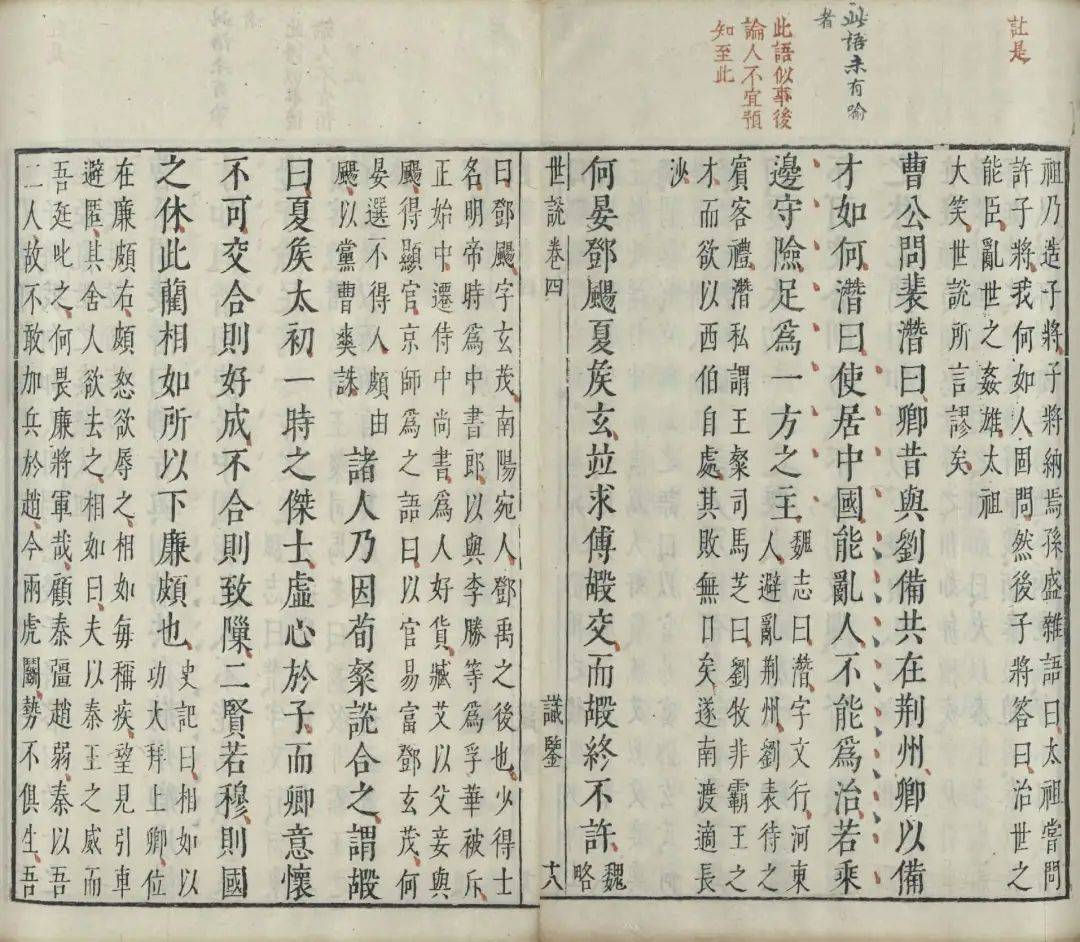 註是
此語未有喻
者
此語似事後
論人不宜預
知至此
祖乃造子將子將納焉孫盛雜語曰太祖嘗問
許子將我何如人固問然後子將答曰治世之
能臣亂世之姦雄太祖
大笑世說所言謬矣
曹公問裴潛曰卿昔與劉備共在荆州卿以備
才如何潛曰使居中國能亂人不能爲治若乘
邊守險足爲一方之主
魏志曰潛字文行河東
人避亂荆州劉表待之
賔客禮潛私謂王粲司馬芝曰劉牧非霸王之
才而欲以西伯自處其敗無日矣遂南渡適長
沙
何晏鄧颺夏矦玄竝求傅嘏交而嘏終不許
魏
略
世說卷四
識鑒
十八
曰鄧颺字玄茂南陽宛人鄧禹之後也少得士
名明帝時爲中書郎以與李勝等爲浮華被斥
正始中遷侍中尚書爲人好貨臧艾以父妾與
颺得顯官京師爲之語曰以官易富鄧玄茂何
晏選不得人頗由
颺以黨曹爽誅
諸人乃因荀粲說合之謂嘏
曰夏矦太初一時之傑士虛心於子而卿意懷
不可交合則好成不合則致隟二賢若穆則國
之休此藺相如所以下廉頗也
史記曰相如以
功大拜上卿位
在廉頗右頗怒欲辱之相如每稱疾望見引車
避匿其舍人欲去之相如曰夫以秦王之威而
吾廷叱之何畏廉將軍哉顧秦彊趙弱秦以吾
二人故不敢加兵於趙今兩虎鬭勢不俱生吾